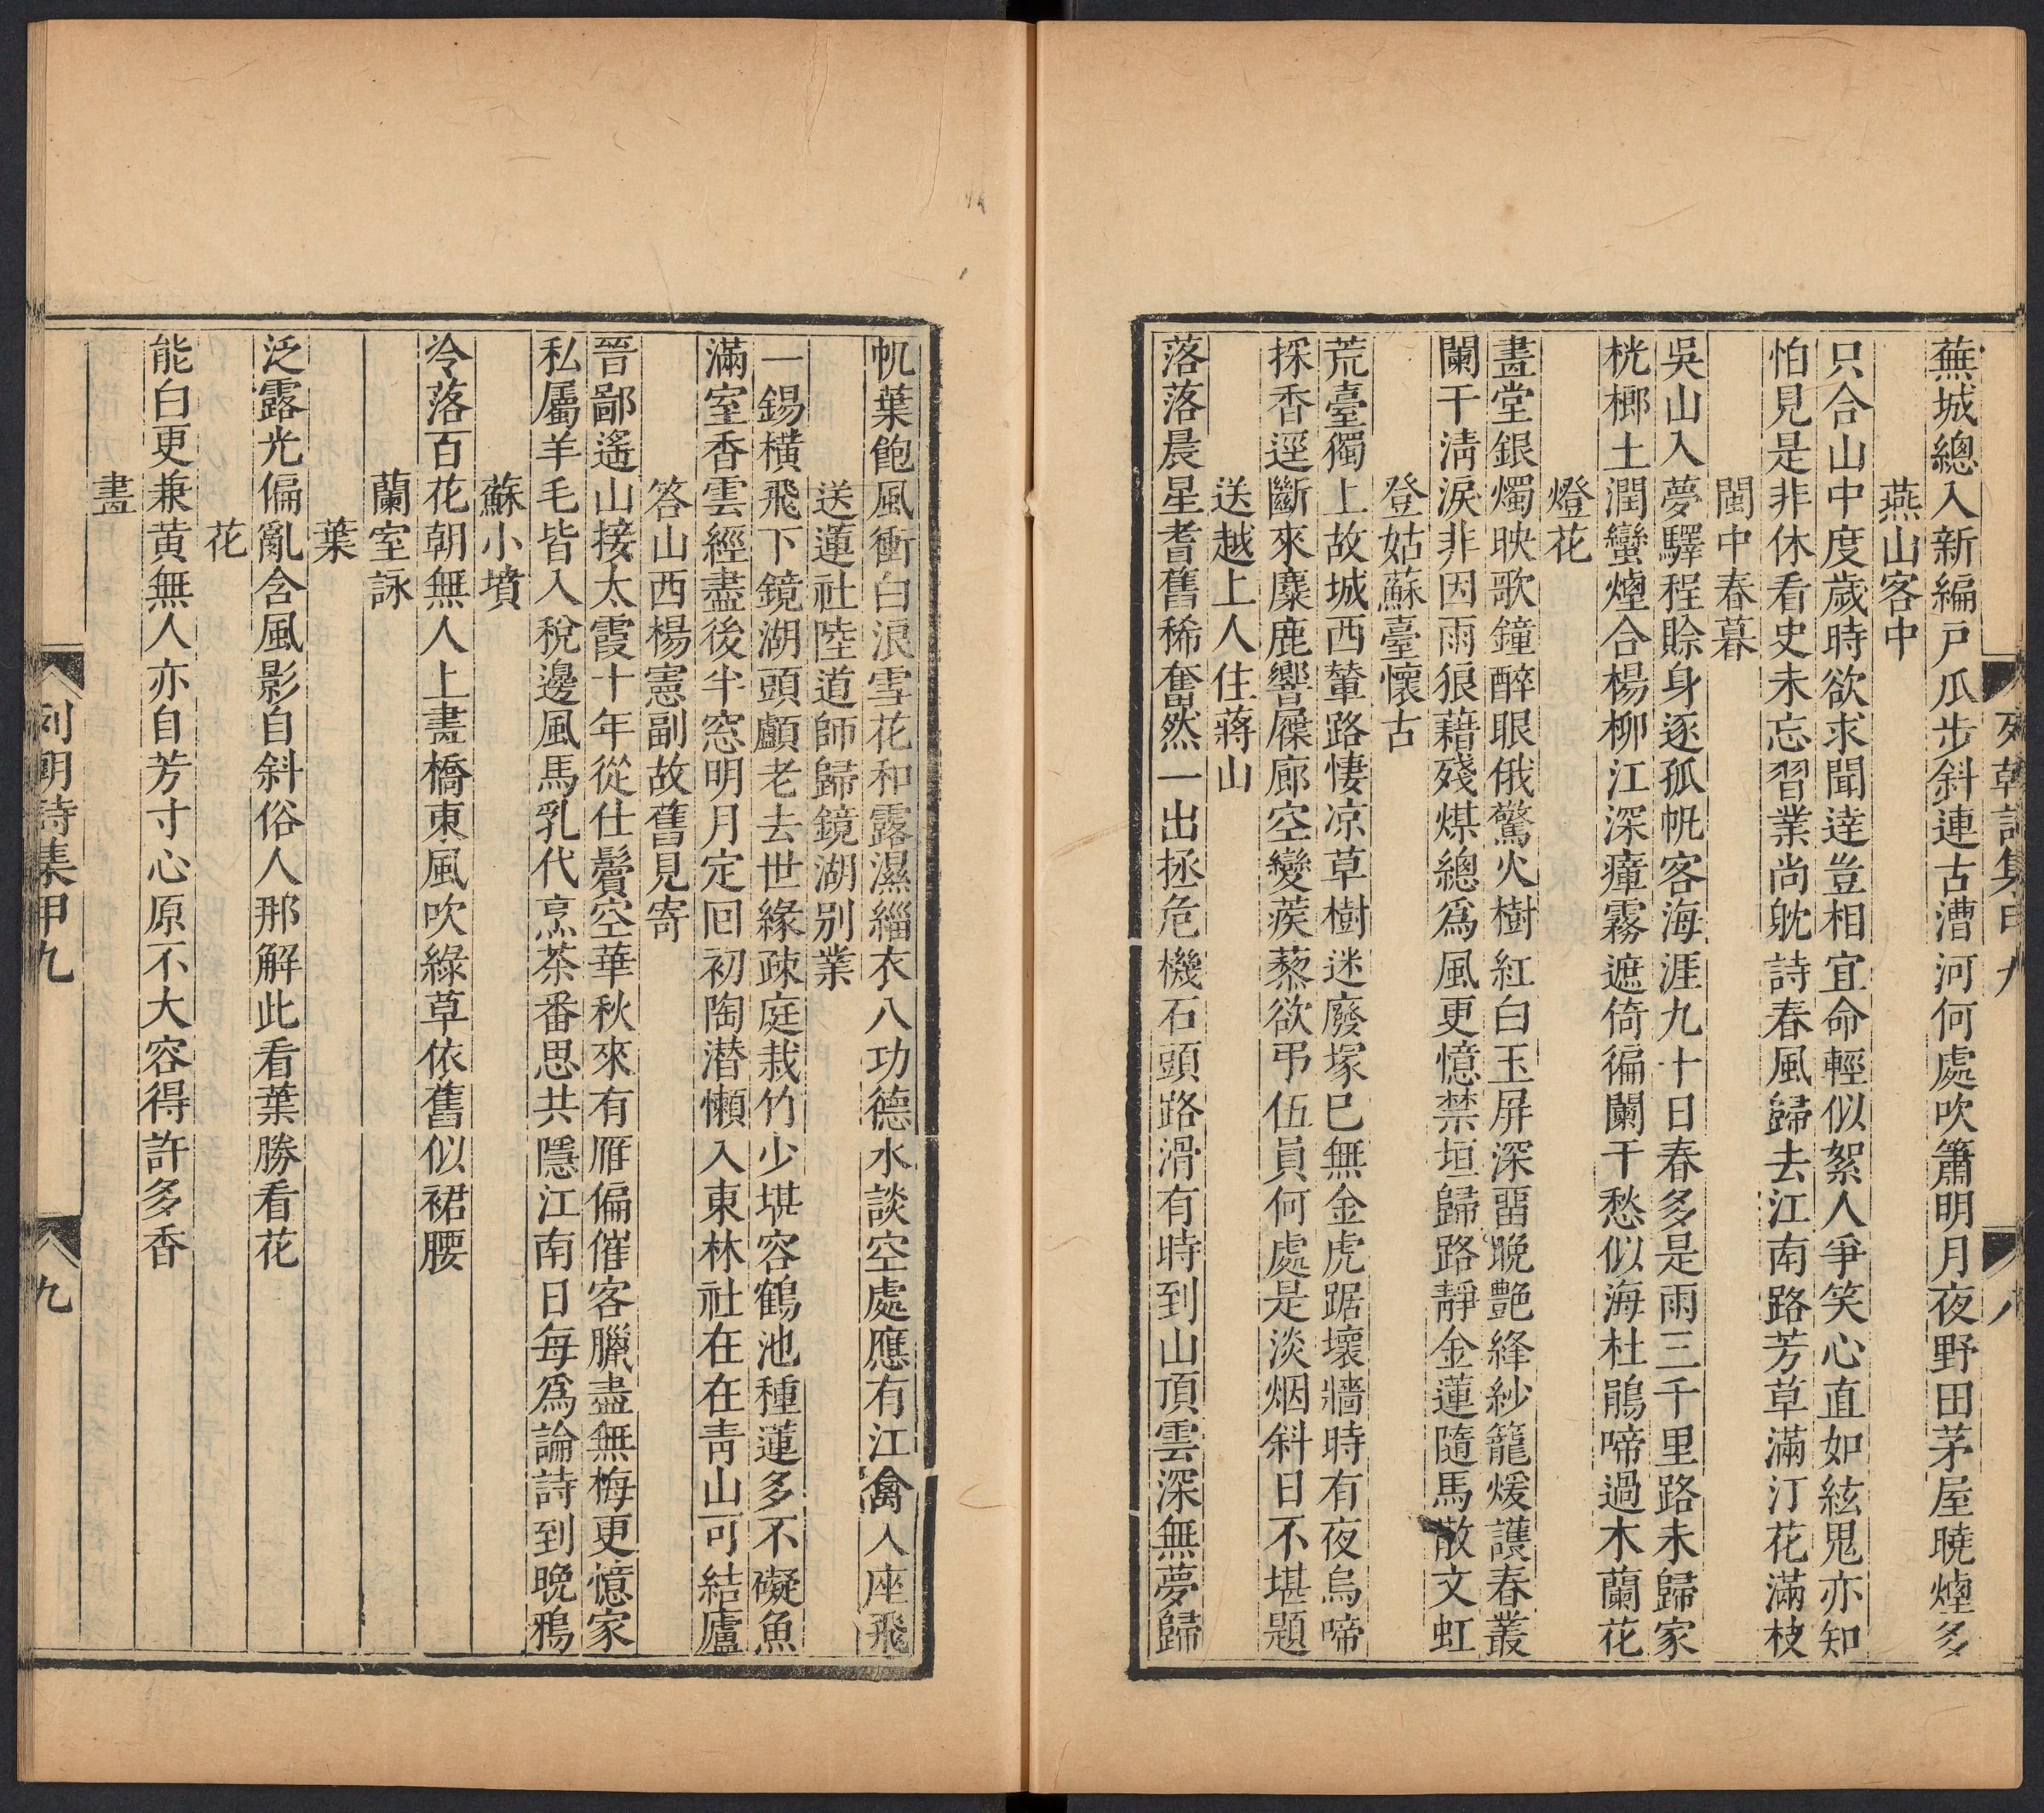 蕪城總入新編戸瓜步斜連古漕河何處吹簫明月夜野田茅屋曉煙多
燕山客中
只合山中度歲時欲求聞逹豈相宜命輕似絮人爭笑心直如絃鬼亦知
怕見是非休看史未忘習業尚躭詩春風歸去江南路芳草滿汀花滿枝
閩中春暮
吳山入夢驛程賒身逐孤帆客海涯九十日春多是雨三千里路未歸家
桄榔土潤蠻煙合楊柳江深瘴霧遮倚徧闌干愁似海杜鵑啼過木蘭花
燈花
畫堂銀燭映歌鐘醉眼俄驚火樹紅白玉屏深畱晚艶絳紗籠煖護春叢
闌干淸淚非因雨狼藉殘煤總爲風更憶禁垣歸路靜金蓮隨馬散文虹
登姑蘇臺懷古
荒臺獨上故城西輦路悽凉草樹迷廢塚巳無金虎踞壞牆時有夜烏啼
採香逕斷來麋鹿響屧廊空變蒺藜欲弔伍員何處是淡烟斜日不堪題
送越上人住蔣山
落落晨星耆舊稀奮然一出拯危機石頭路滑有時到山頂雲深無夢歸
帆葉飽風衝白浪雪花和露濕緇衣八功德水談空處應有江禽入座飛
送蓮社陸道師歸鏡湖别業
一錫橫飛下鏡湖頭顱老去世緣疎庭栽竹少堪容鶴池種蓮多不礙魚
滿室香雲經盡後半窓明月定回初陶潜懶入東林社在在靑山可結廬
答山西楊憲副故舊見寄
晉鄙遙山接太霞十年從仕鬢空華秋來有雁偏催客臘盡無梅更憶家
私屬羊毛皆入稅邊風馬乳代烹茶番思共隱江南日每爲論詩到晚鴉
蘇小墳
冷落百花朝無人上畫橋東風吹綠草依舊似裙腰
蘭室詠
葉
泛露光偏亂含風影自斜俗人那解此看葉勝看花
花
能白更兼黄無人亦自芳寸心原不大容得許多香
畫
列朝詩集甲九
九